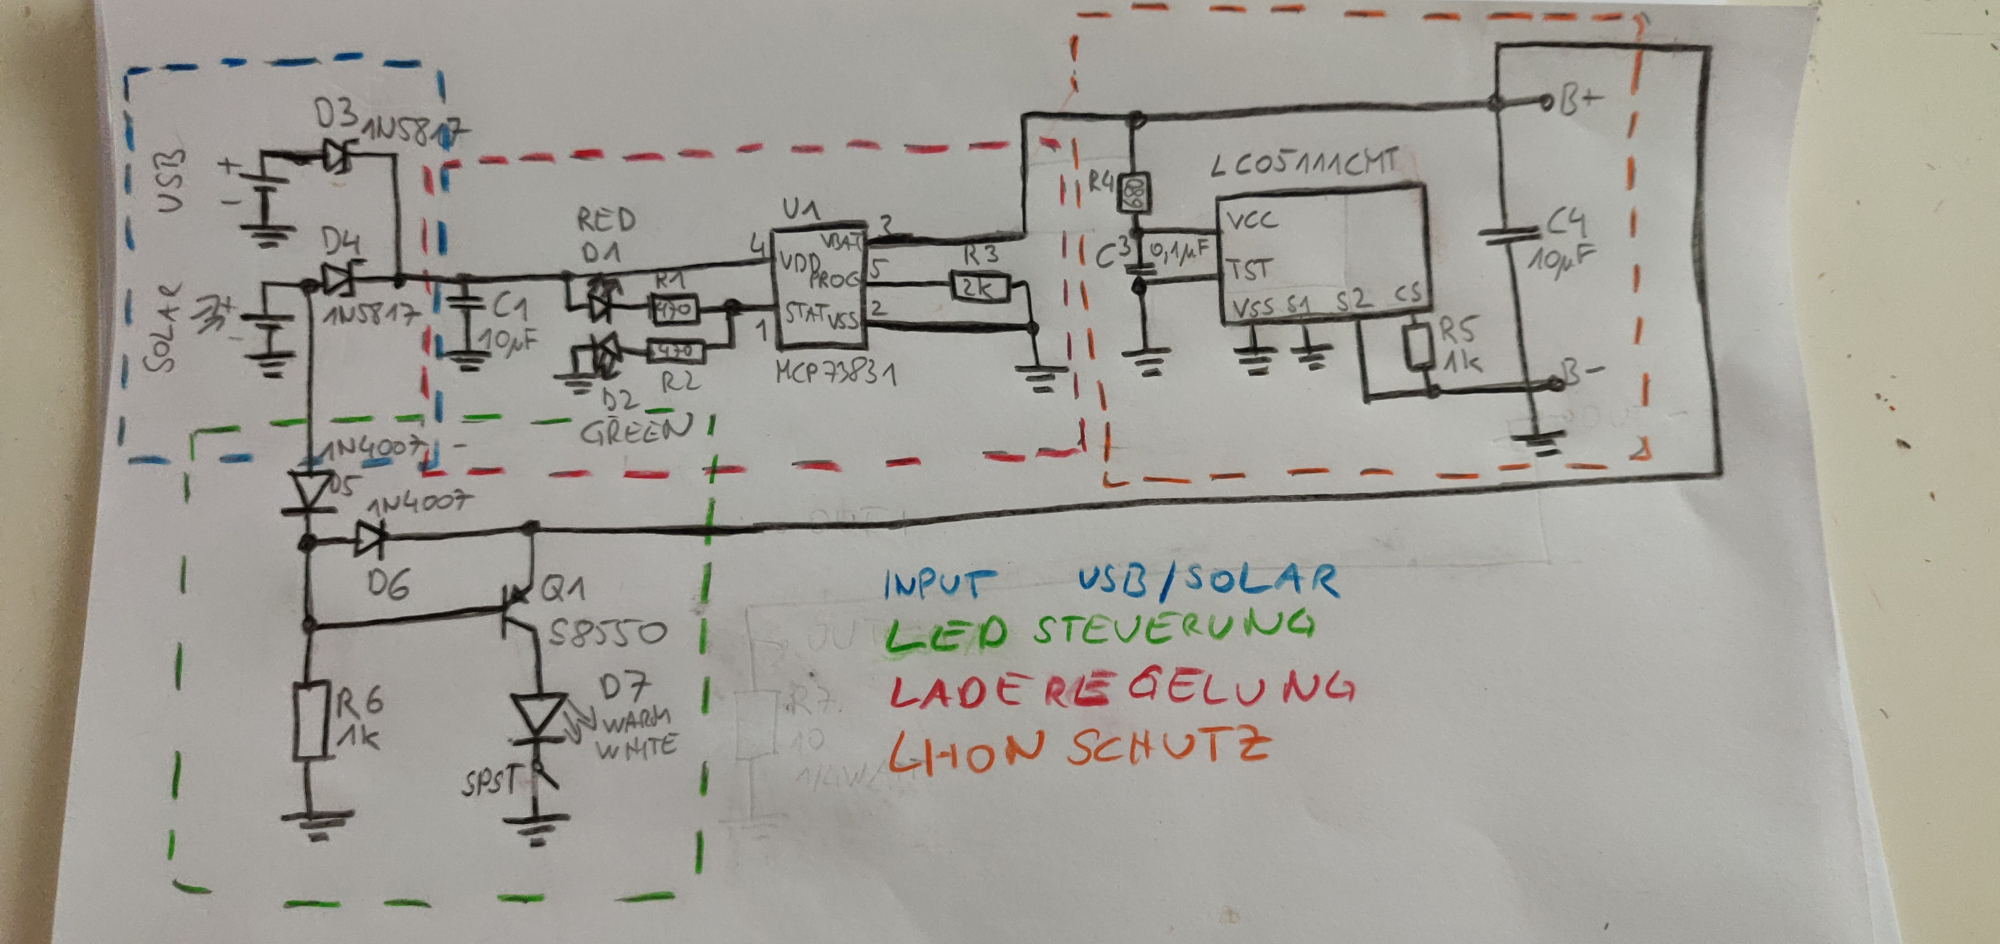 D3
1N5817
USB
+
-
D4
1N5817
SOLAR
+
-
C1
10µF
RED
D1
R1
470
470
R2
D2
GREEN
U1
4
3
VBAT
VDD
5
PROG
STAT
VSS
1
2
MCP73831
R3
2k
R4
C3
0,1µF
LC05111CMT
VCC
TST
VSS S1 S2 CS
R5
1k
B+
C4
10µF
B-
1N4007
D5
1N4007
D6
Q1
S8550
R6
1k
D7
WARM
WHITE
SPST
INPUT USB/SOLAR
LED STEUERUNG
LADEREGELUNG
LIION SCHUTZ
R7
10